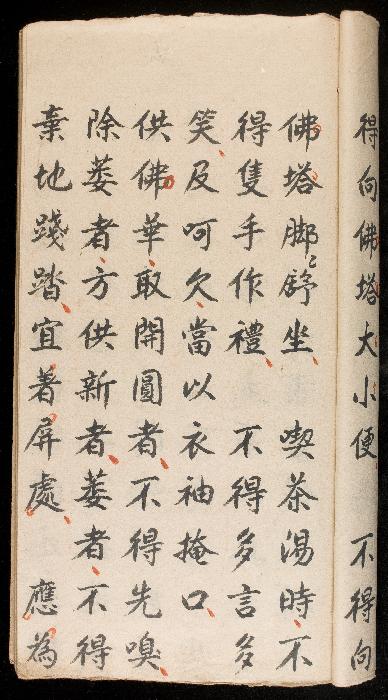 得向佛塔大小便　不得向
佛塔脚〻舒坐　喫茶湯時不
得隻手作禮　不得多言多
笑及呵欠當以衣袖掩口
供佛華取開圓者不得先嗅
除萎者方供新者萎者不得
棄地踐踏宜著屏處　應為